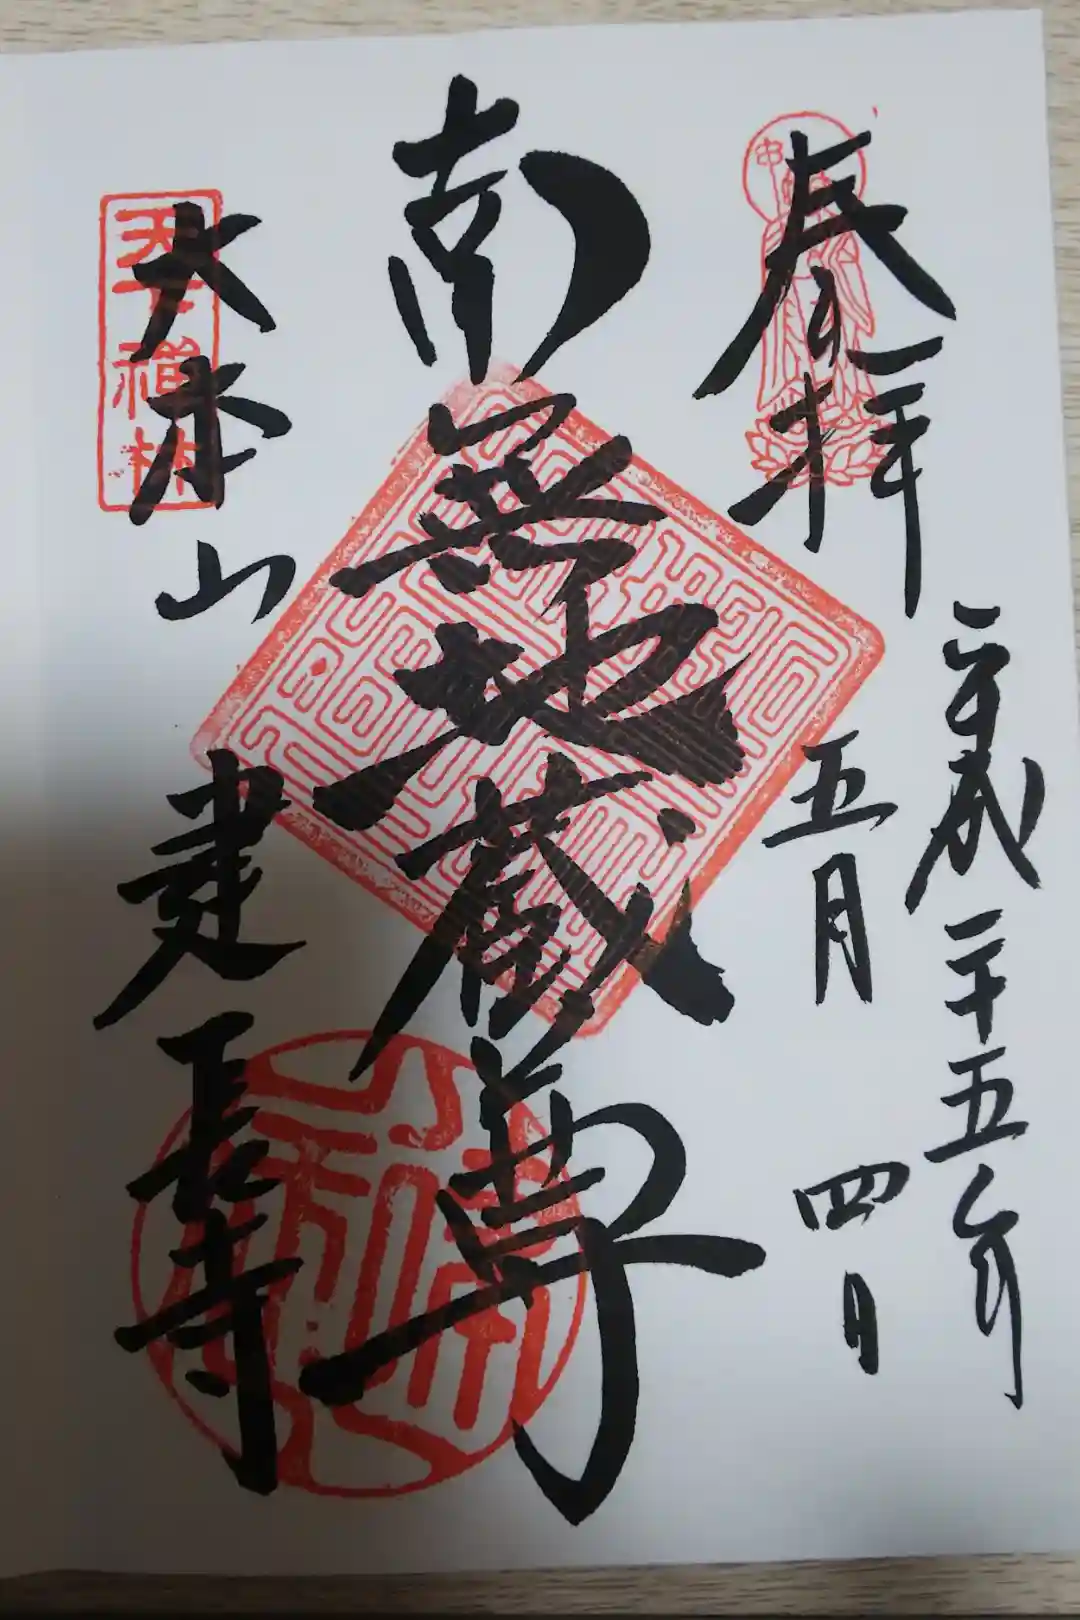 奉拝
平成二十五年
五月四日
南無地蔵尊
大本山建長寺
天下禅林